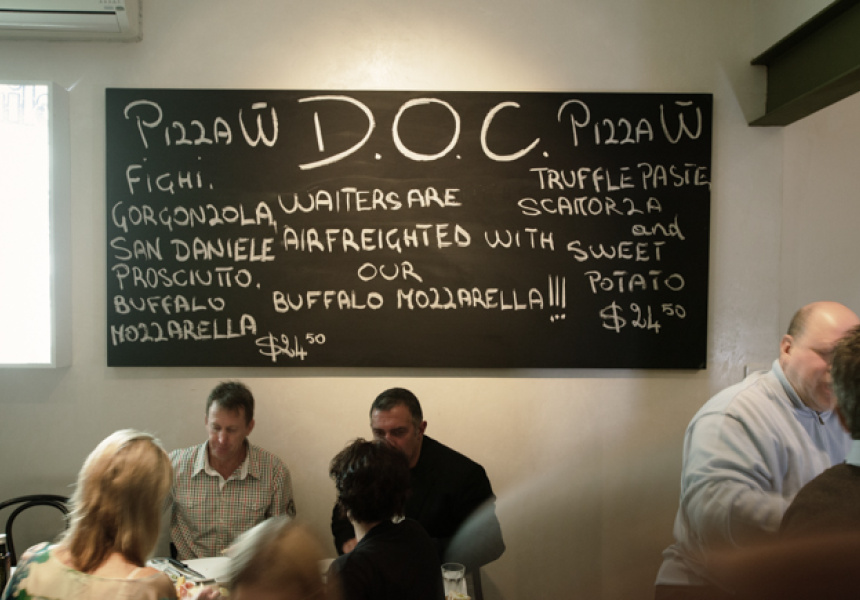 Pizza W̄
FIGHI.
GORGONZOLA,
SAN DANIELE
PROSCIUTTO.
BUFFALO
MOZZARELLA
$24.50
D.O.C.
WAITERS ARE
AIRFREIGHTED WITH
OUR
BUFFALO MOZZARELLA!!!
Pizza W̄
TRUFFLE PASTE,
SCAMORZA
and
SWEET
POTATO
$24.50